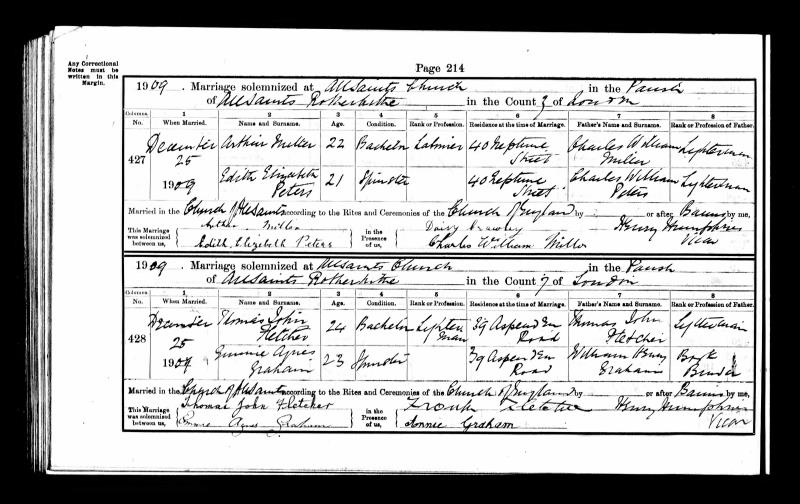 Any Correctional
Notes must be
written in this
Margin.
Page 214
1909. Marriage solemnized at Allsaints Church in the Parish
of Allsaints Rotherhithe in the County of London
Columns. 1 2 3 4 5 6 7 8
No. When Married. Name and Surname. Age. Condition. Rank or Profession. Residence at the time of Marriage. Father's Name and Surname. Rank or Profession of Father.
427 December 25 1909 Arthur Miller 22 Bachelor 40 Neptune Street Charles William Miller Lighterman
Edith Elizabeth Peters 21 Spinster 40 Neptune Street Charles William Peters Lighterman
Married in the Church of Allsaints according to the Rites and Ceremonies of the Church of England by or after Banns by me,
This Marriage was solemnized between us, Arthur Miller in the Presence of us, Daisy Henry Humphries
Edith Elizabeth Peters Charles William Miller Vicar
1909. Marriage solemnized at Allsaints Church in the Parish
of Allsaints Rotherhithe in the County of London
Columns. 1 2 3 4 5 6 7 8
No. When Married. Name and Surname. Age. Condition. Rank or Profession. Residence at the time of Marriage. Father's Name and Surname. Rank or Profession of Father.
428 December 25 1909 Thomas John Fletcher 24 Bachelor Lighterman 39 Aspenden Road Thomas John Fletcher Lighterman
Agnes Graham 23 Spinster 39 Aspenden Road William Henry Graham Book Binder
Married in the Church of Allsaints according to the Rites and Ceremonies of the Church of England by or after Banns by me,
This Marriage was solemnized between us, Thomas John Fletcher in the Presence of us, Frank Fletcher Henry Humphries
Agnes Graham Annie Graham Vicar